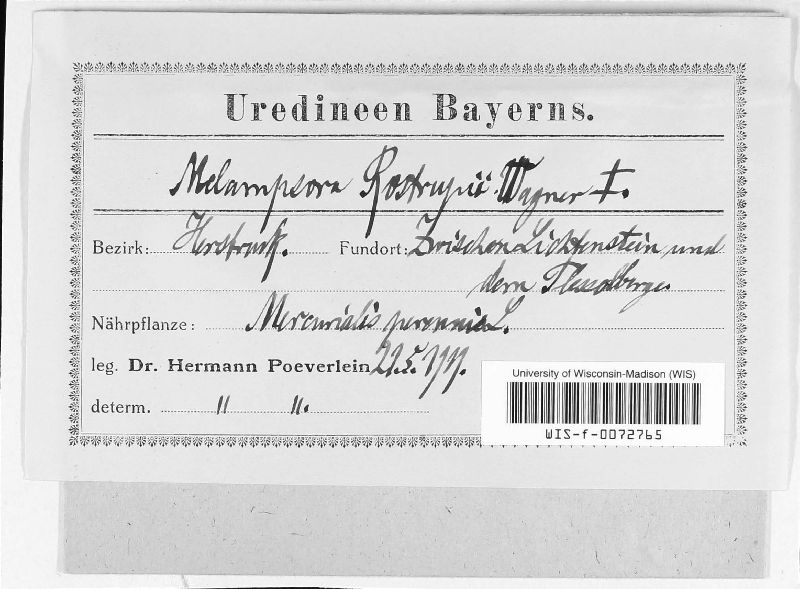 Uredineen Bayerns.
Melampsora Rostrupii Wagner I.
Bezirk: Hersbruck. Fundort: Zwischen Lichtenstein und
dem
Nährpflanze: Mercurialis perennis L.
leg. Dr. Hermann Poeverlein 21.5.
determ. " ".
University of Wisconsin-Madison (WIS)
WIS-f-0072765